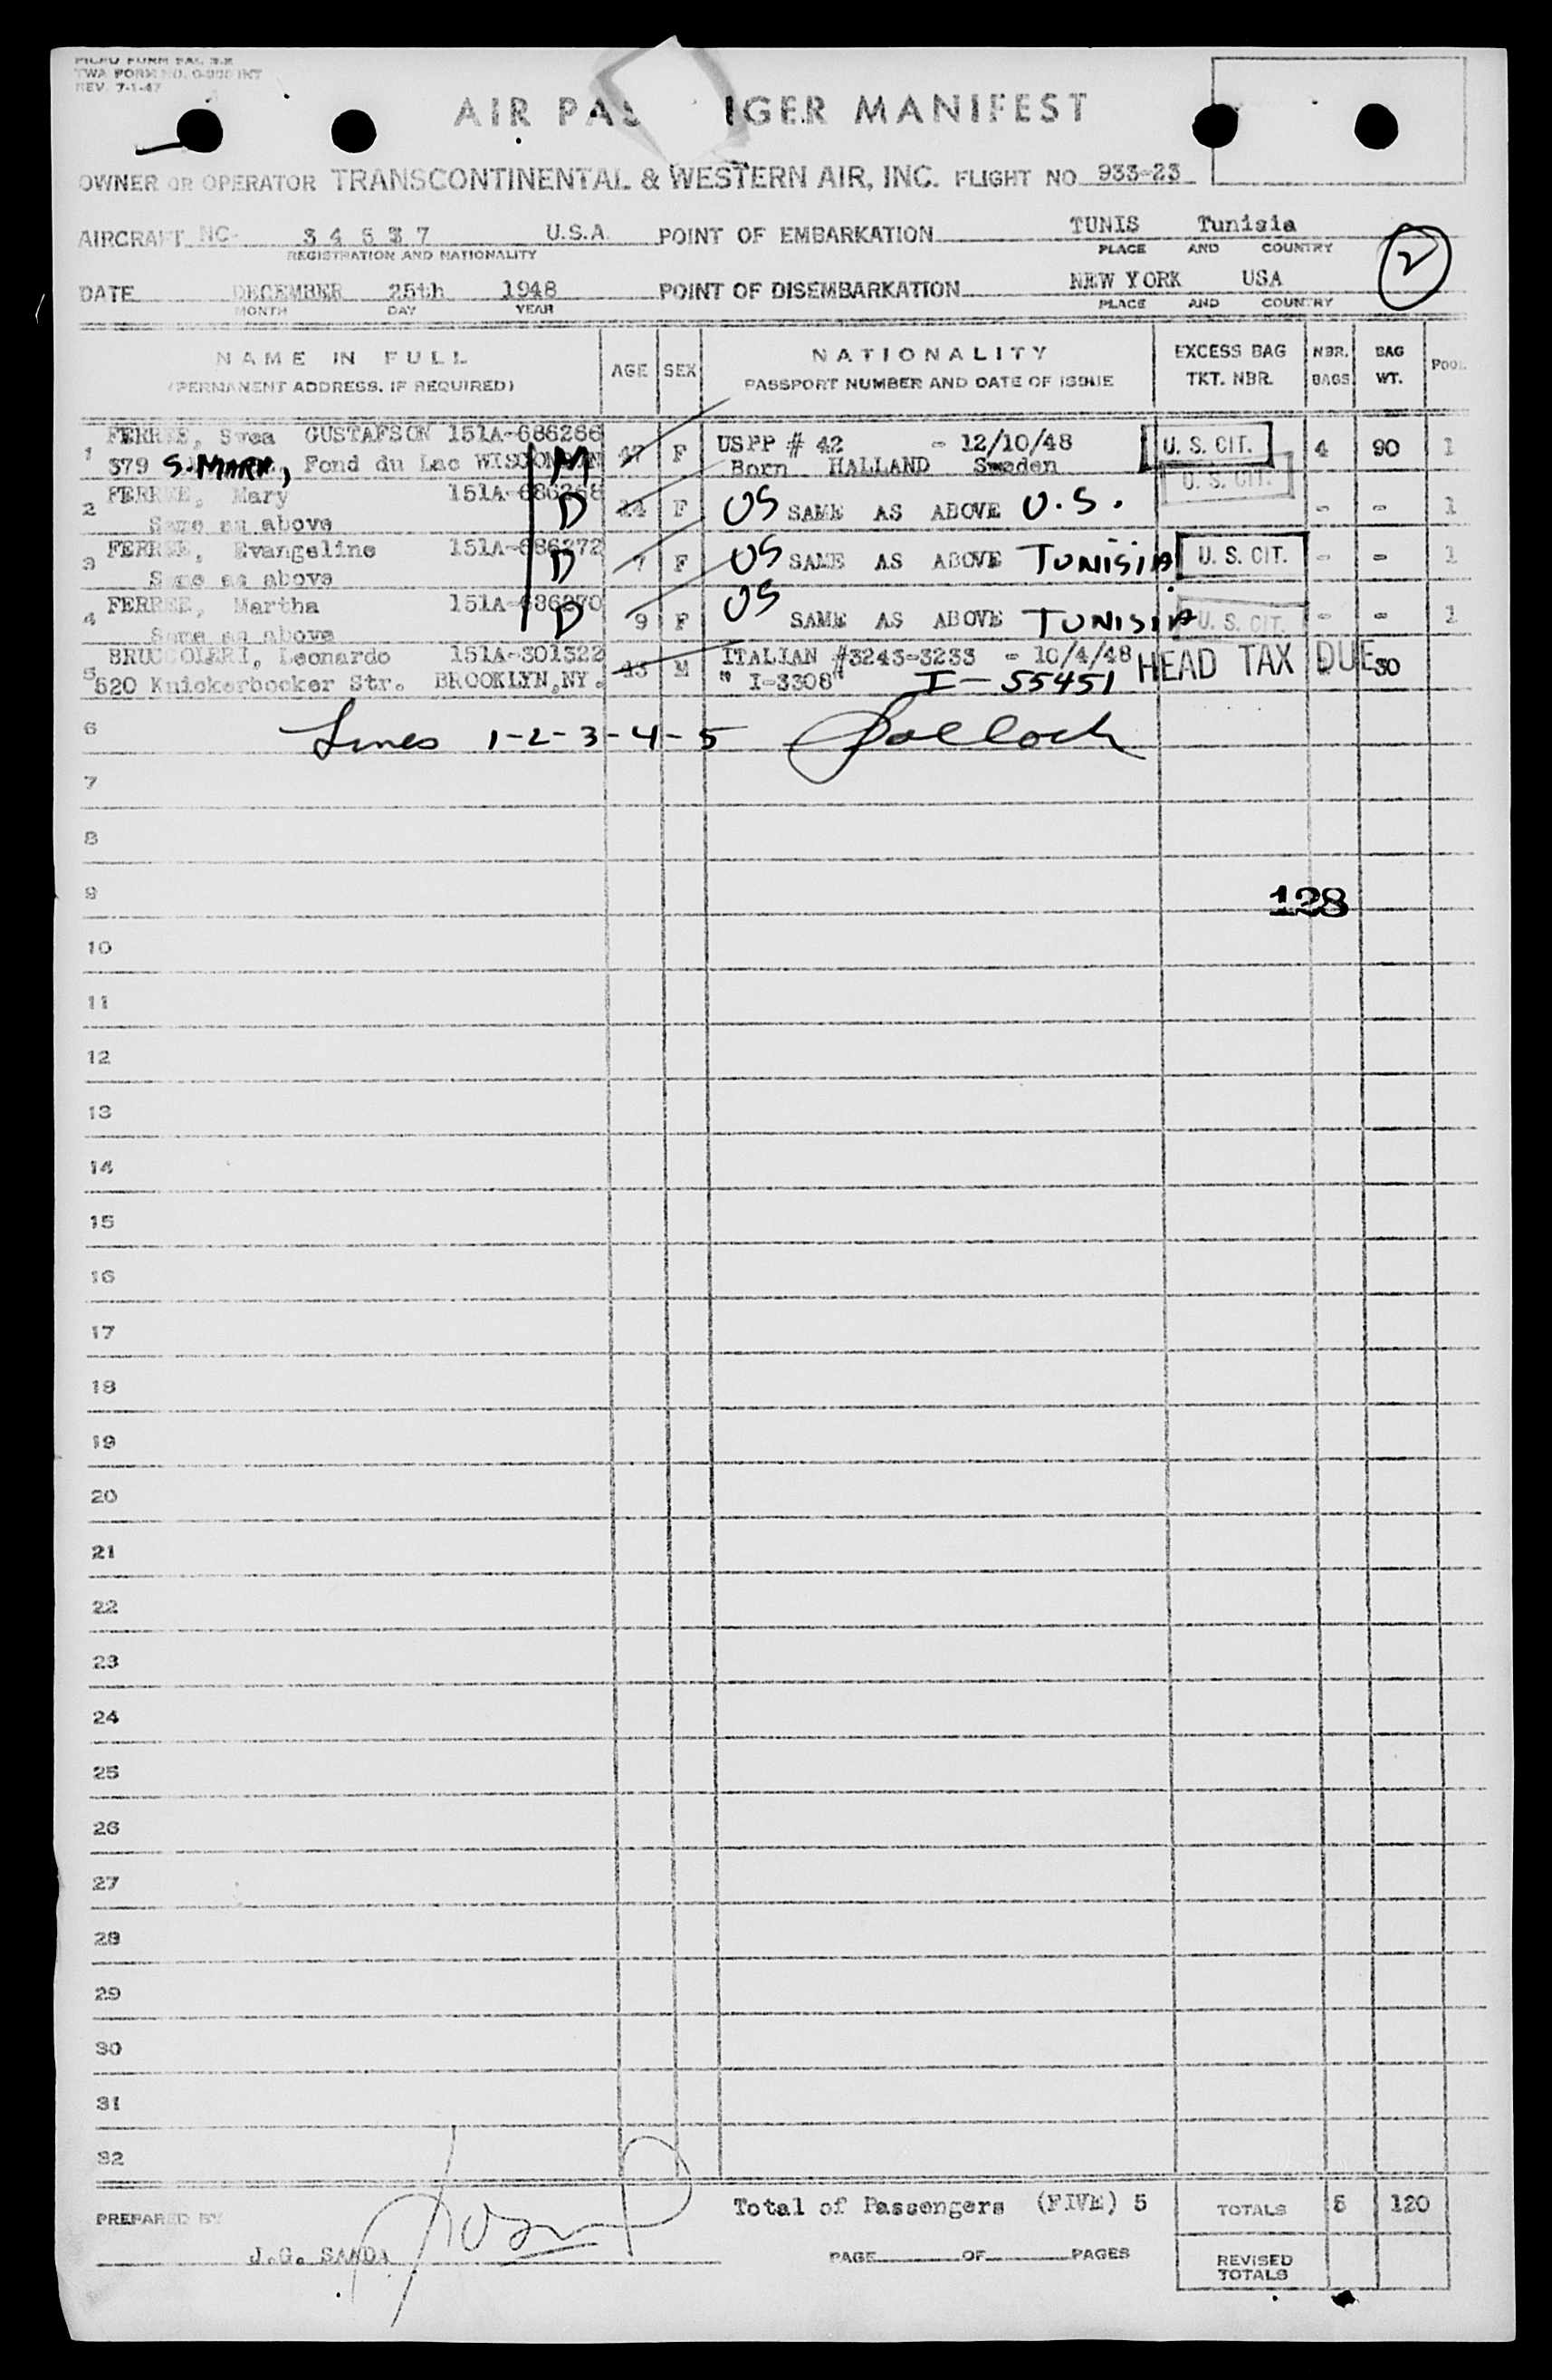 TWA FORM NO. INT
REV. 7-1-47
AIR PAS GER MANIFEST
OWNER OR OPERATOR TRANSCONTINENTAL & WESTERN AIR, INC. FLIGHT NO 933-23
AIRCRAFT NC- 34537 U.S.A POINT OF EMBARKATION TUNIS Tunisia
REGISTRATION AND NATIONALITY PLACE AND COUNTRY
2
DATE DECEMBER 25th 1948 POINT OF DISEMBARKATION NEW YORK USA
MONTH DAY YEAR PLACE AND COUNTRY
NAME IN FULL AGE SEX NATIONALITY EXCESS BAG NBR. BAG POOL
(PERMANENT ADDRESS, IF REQUIRED) PASSPORT NUMBER AND DATE OF ISSUE TKT. NBR. BAGS WT.
1 FERREE, Svea GUSTAFSON 151A-686266 47 F USPP # 42 - 12/10/48 U. S. CIT. 4 90 1
379 S. MARR, Fond du Lac WISCONSIN M Born HALLAND Sweden
2 FERREE, Mary 151A-686268 D 14 F US SAME AS ABOVE U.S. U. S. CIT. - - 1
Same as above
3 FERREE, Evangeline 151A-686272 D 7 F US SAME AS ABOVE TUNISIA U. S. CIT. - - 1
Same as above
4 FERREE, Martha 151A-686270 D 9 F US SAME AS ABOVE TUNISIA U. S. CIT. - - 1
Same as above
5 BRUCCOLERI, Leonardo 151A-301322 43 M ITALIAN #3243-3233 - 10/4/48 HEAD TAX DUE 30
520 Knickerbocker Str. BROOKLYN.NY. " I-3308" I-55451
6 Lines 1-2-3-4-5 Pollock
7
8
9 128
10
11
12
13
14
15
16
17
18
19
20
21
22
23
24
25
26
27
28
29
30
31
32
PREPARED BY Total of Passengers (FIVE) 5 TOTALS 5 120
J.G. SANDA PAGE OF PAGES REVISED
TOTALS